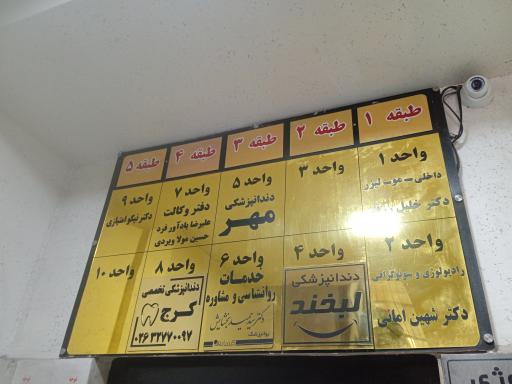 طبقه ۱
واحد ۱
داخلی - مو - لیزر
دکتر خلیل
واحد ۲
رادیولوژی و سونوگرافی
دکتر شهین امانی
طبقه ۲
واحد ۳
واحد ۴
دندانپزشکی
لبخند
طبقه ۳
واحد ۵
دندانپزشکی
مهر
واحد ۶
خدمات
روانشناسی و مشاوره
طبقه ۴
واحد ۷
دفتر وکالت
علیرضا یادآور فرد
حسین مولا ویردی
واحد ۸
دندانپزشکی تخصصی
کرج
۰۲۶ ۳۲۷۷۰۰۹۷
طبقه ۵
واحد ۹
دکتر نیکو امتیازی
واحد ۱۰